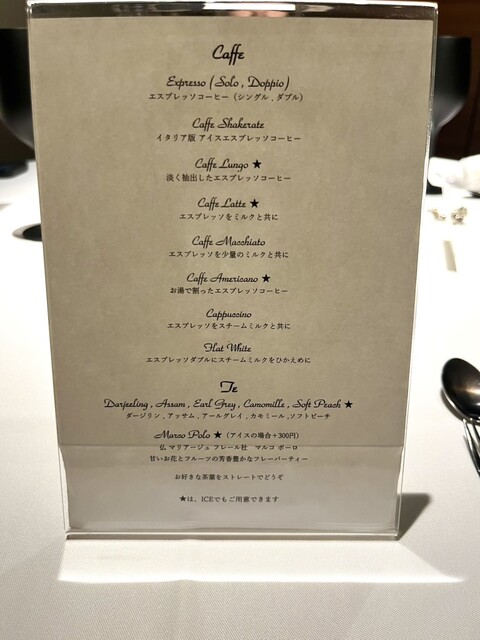 Caffe
Expresso ( Solo , Doppio )
エスプレッソコーヒー（シングル , ダブル）
Caffe Shakerate
イタリア版 アイスエスプレッソコーヒー
Caffe Lungo ★
淡く抽出したエスプレッソコーヒー
Caffe Latte ★
エスプレッソをミルクと共に
Caffe Macchiato
エスプレッソを少量のミルクと共に
Caffe Americano ★
お湯で割ったエスプレッソコーヒー
Cappuccino
エスプレッソをスチームミルクと共に
Flat White
エスプレッソダブルにスチームミルクをひかえめに
Te
Darjeeling , Assam , Earl Grey , Camomille , Soft Peach ★
ダージリン , アッサム , アールグレイ , カモミール , ソフトピーチ
Marco Polo ★（アイスの場合＋300円）
仏 マリアージュ フレール社 マルコ ポーロ
甘いお花とフルーツの芳香豊かなフレーバーティー
お好きな茶葉をストレートでどうぞ
★は、ICEでもご用意できます